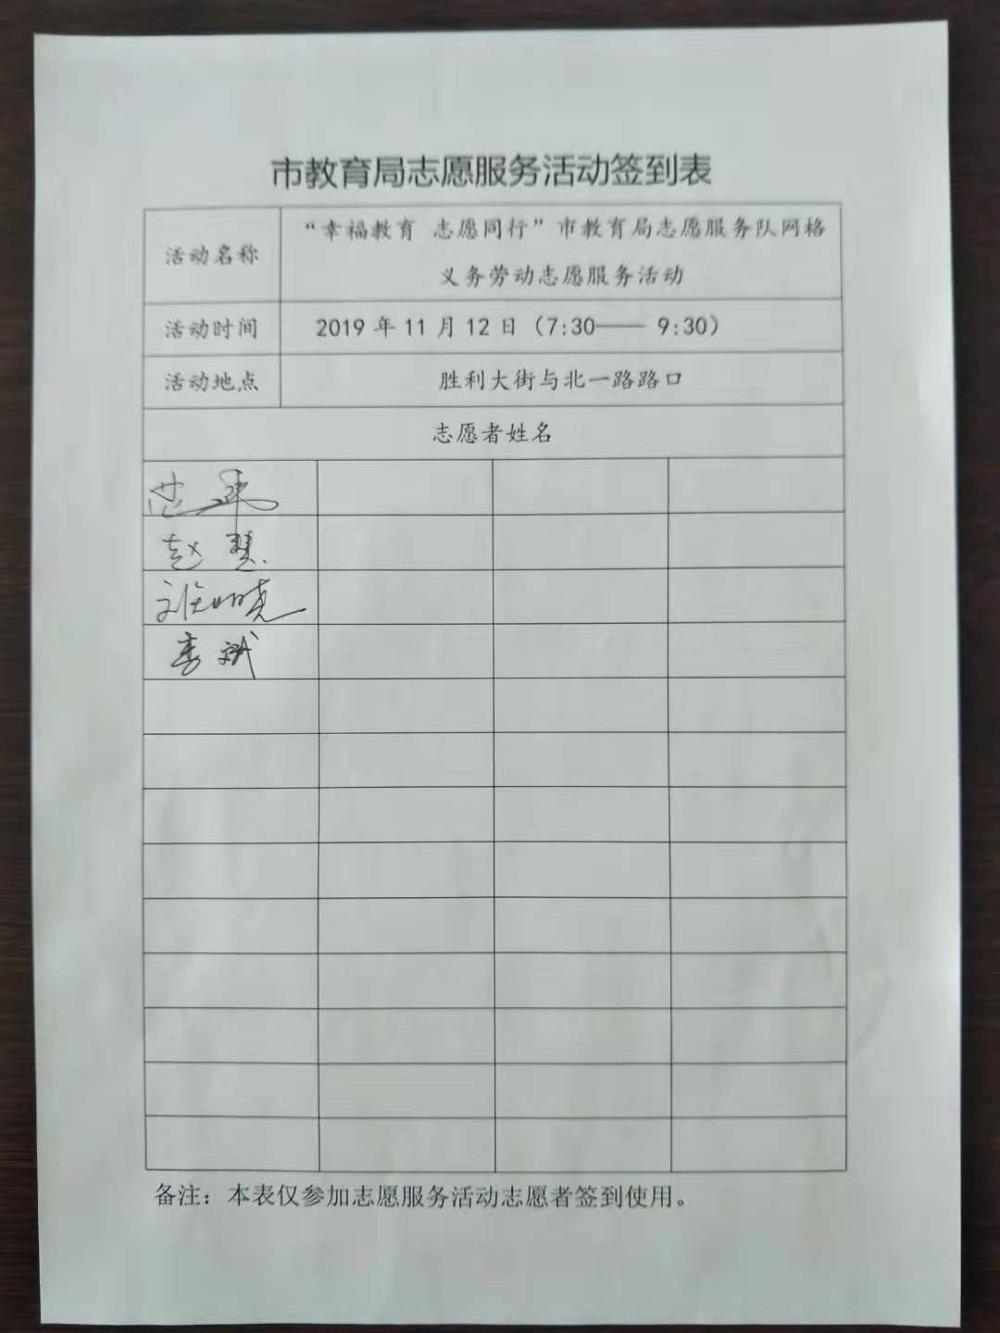 市教育局志愿服务活动签到表
活动名称
“幸福教育 志愿同行”市教育局志愿服务队网格
义务劳动志愿服务活动
活动时间
2019年11月12日(7:30—— 9:30)
活动地点
胜利大街与北一路路口
志愿者姓名
赵
晓
李斌
备注：本表仅参加志愿服务活动志愿者签到使用。